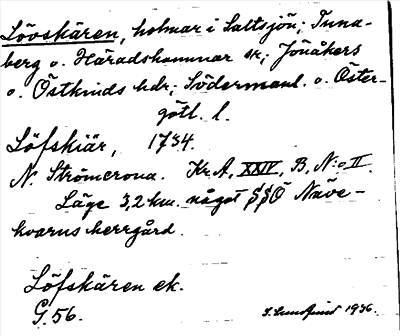 Lövskären, holmar i Saltsjön; Tuna-
berg o. Häradshammar sr; Jönåkers
o. Östkinds hdr; Södermanl. o. Öster-
götl. l.
Löfskiär, 1734.
N. Strömcrona. Kr. A, XXIV, B, N:o II.
Läge 3,2 km. något SSO Näve-
kvarns herrgård.
Löfskären ek.
G. 56.
1936.